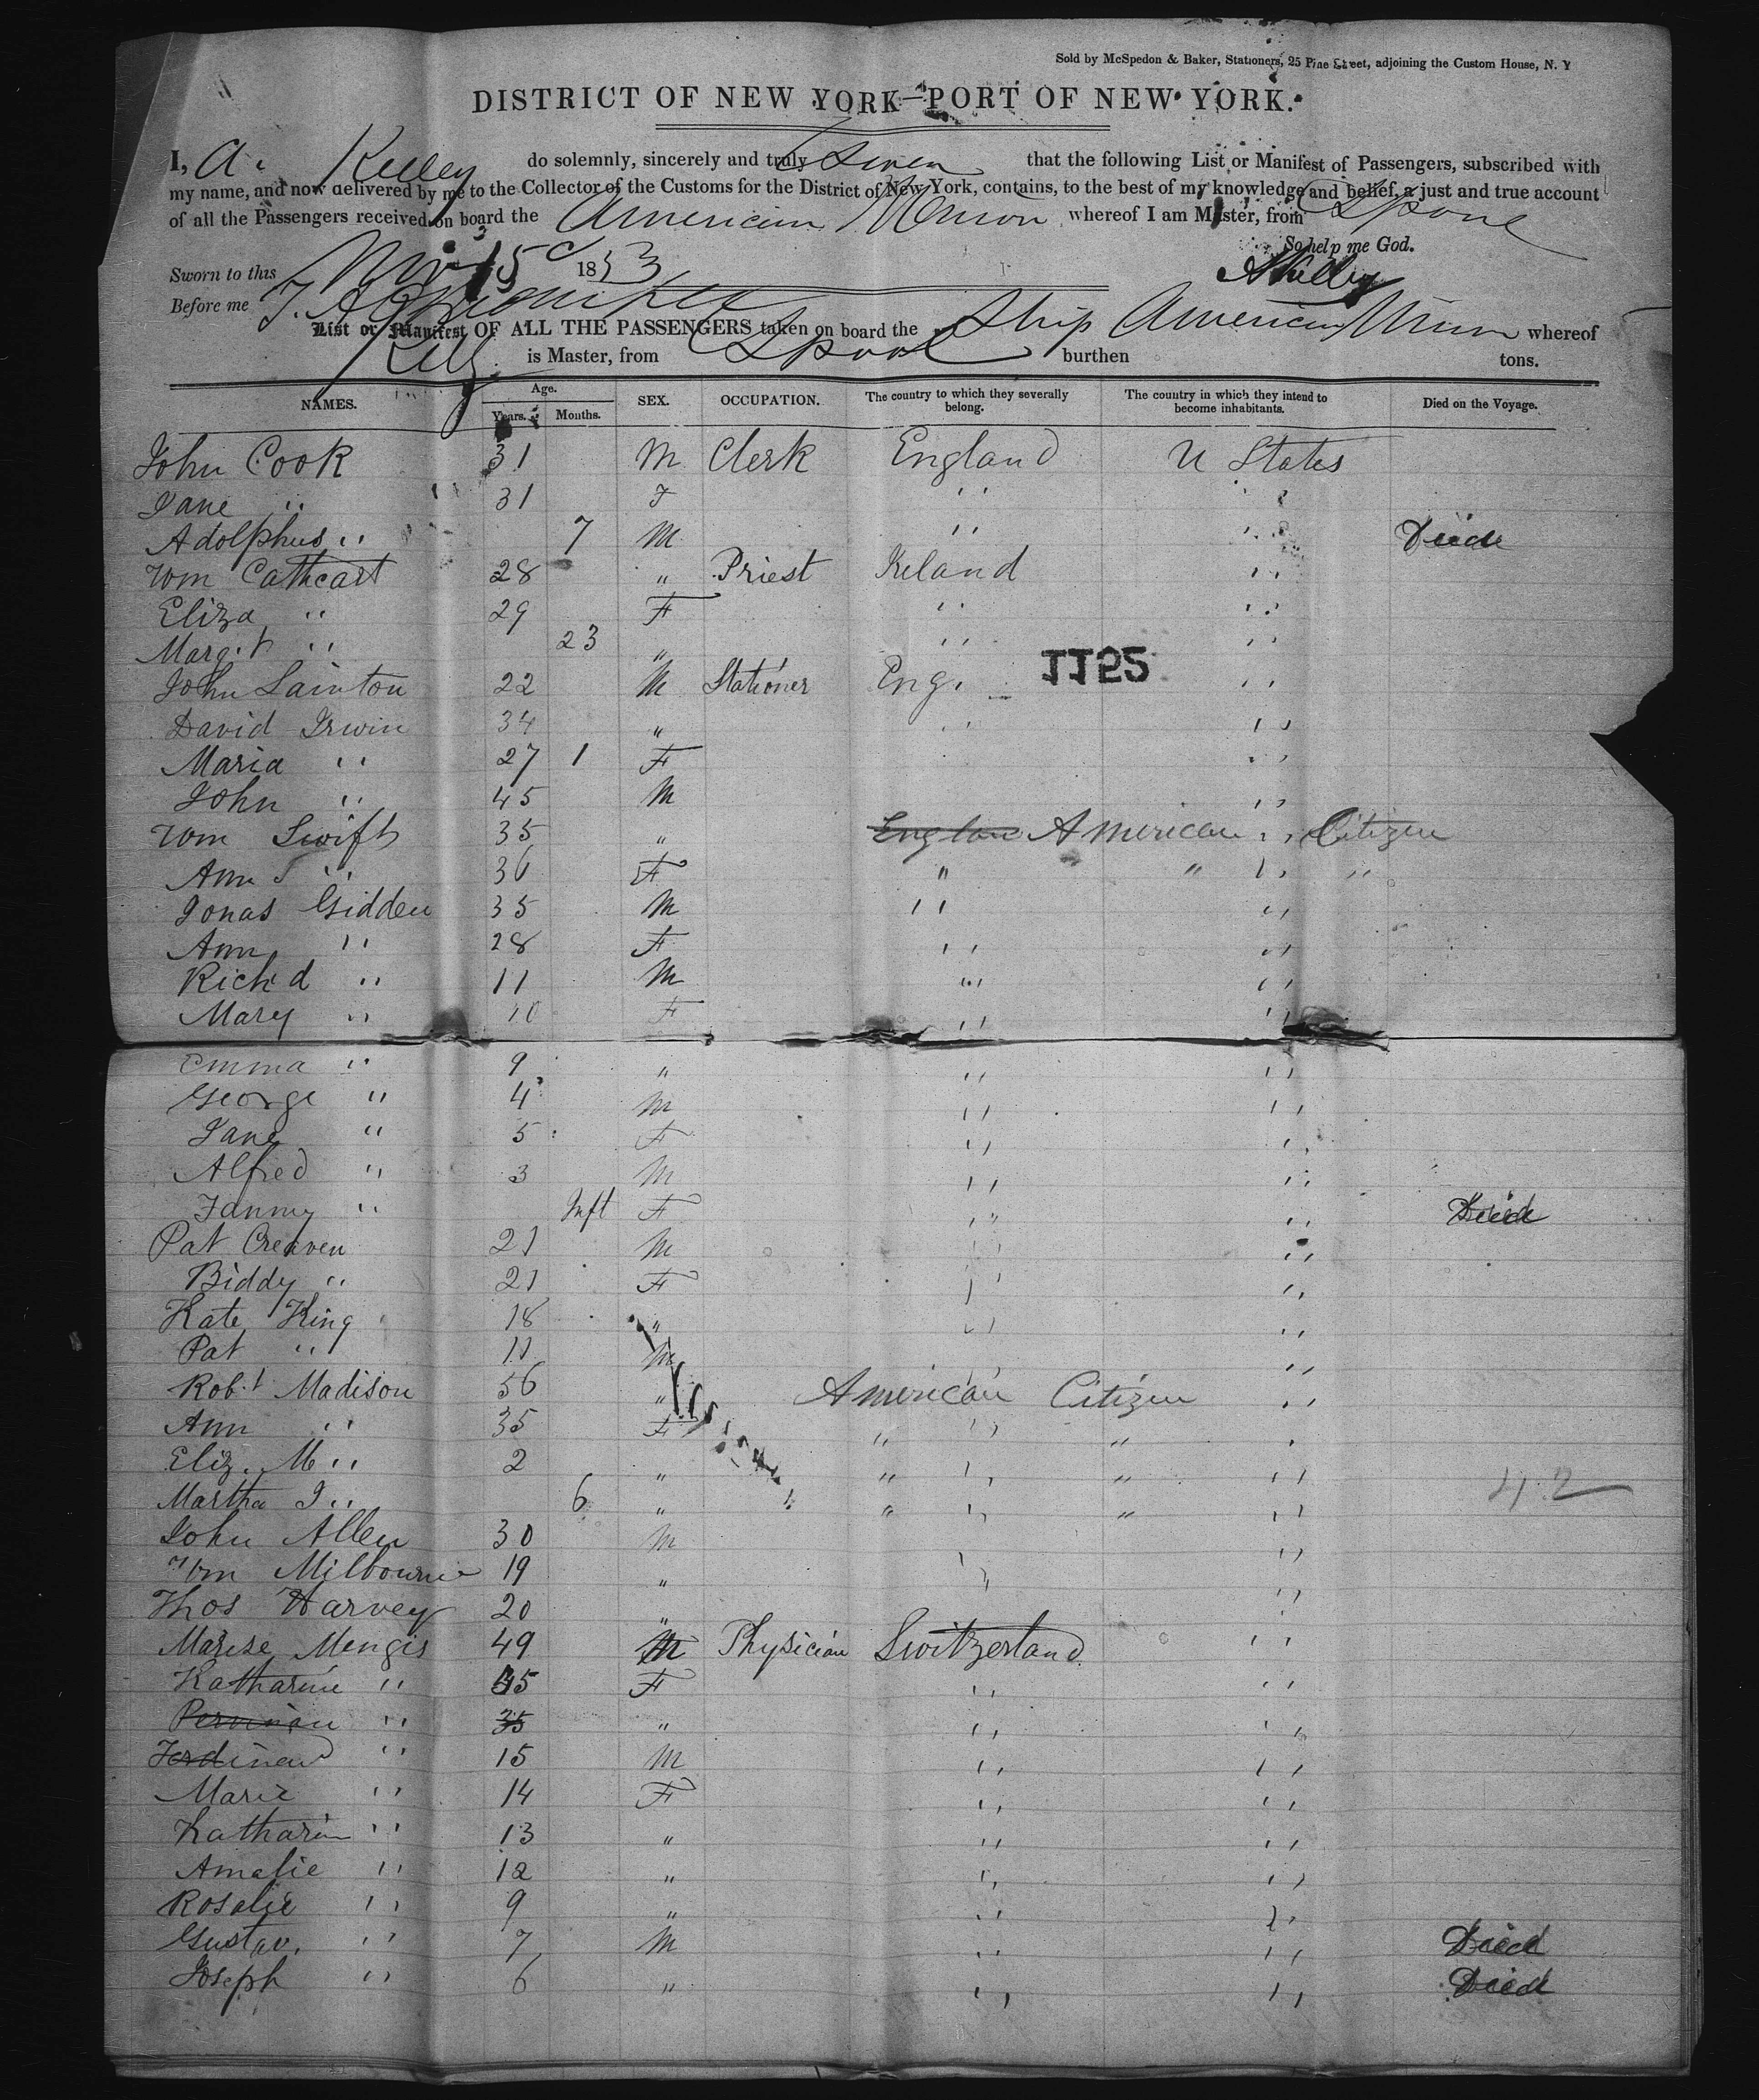 Sold by McSpedon & Baker, Stationers, 25 Pine Street, adjoining the Custom House, N. Y
DISTRICT OF NEW YORK—PORT OF NEW YORK.
I, A. Kelley do solemnly, sincerely and truly Swear that the following List or Manifest of Passengers, subscribed with
my name, and now delivered by me to the Collector of the Customs for the District of New York, contains, to the best of my knowledge and belief, a just and true account
of all the Passengers received on board the American Union whereof I am Master, from Lpool
So help me God.
Sworn to this Nov 15 1853 A Kelley
Before me
List or Manifest OF ALL THE PASSENGERS taken on board the Ship American Union whereof
Kelly is Master, from Lpool burthen tons.
NAMES. Age. Years. Months. SEX. OCCUPATION. The country to which they severally belong. The country in which they intend to become inhabitants. Died on the Voyage.
John Cook 31 M Clerk England U States
Jane " 31 F " "
Adolphus " 7 M " " Died
Wm Cathcart 28 " Priest Ireland "
Eliza " 29 F " "
Marg.t " 23 " " "
1125
John Sainton 22 M Stationer Eng. "
David Irwin 34 " " "
Maria " 27 1 F "
John " 45 M "
Wm Swift 35 " England American " Citizen
Ann S " 36 F " " " "
Jonas Gidden 35 M " "
Ann " 28 F " "
Rich'd " 11 M " "
Mary " 10 F " "
Emma " 9 " " "
George " 4 M " "
Jane " 5 F " "
Alfred " 3 M " "
Fanny " Inft F " " Died
Pat Creaven 21 M " "
Biddy " 21 F " "
Kate King 18 " " "
Pat " 11 M "
Rob.t Madison 56 " American Citizen "
Ann " 35 F " " " "
Eliz. M " 2 " " " " "
42
Martha J " 6 " " " " "
John Allen 30 M "
Wm Milbourne 19 " " "
Thos Harvey 20 " "
Mengis 49 M Physician Switzerland "
Katharine " 45 F " "
" 35 " " "
Ferdinand " 15 M " "
Marie " 14 F " "
Katharin " 13 " " "
Amalie " 12 " " "
Rosalie " 9 " " "
Gustav. " 7 M " " Died
Joseph " 6 " " " Died